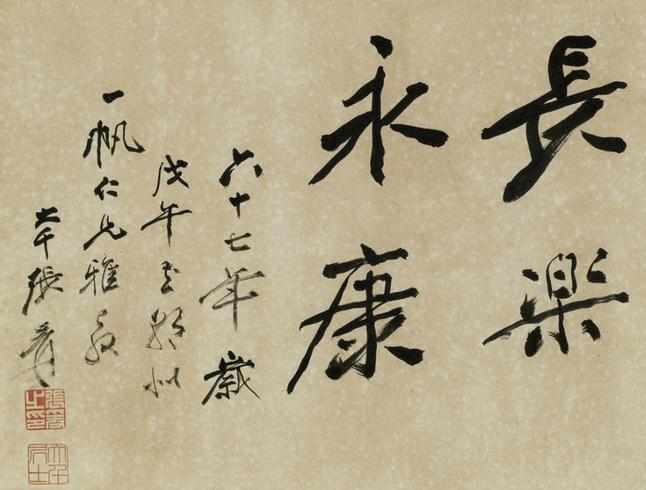 長楽
永康
六十七年歲
戊午
一帆仁兄雅教
大千張爰
張爰之印
大千居士